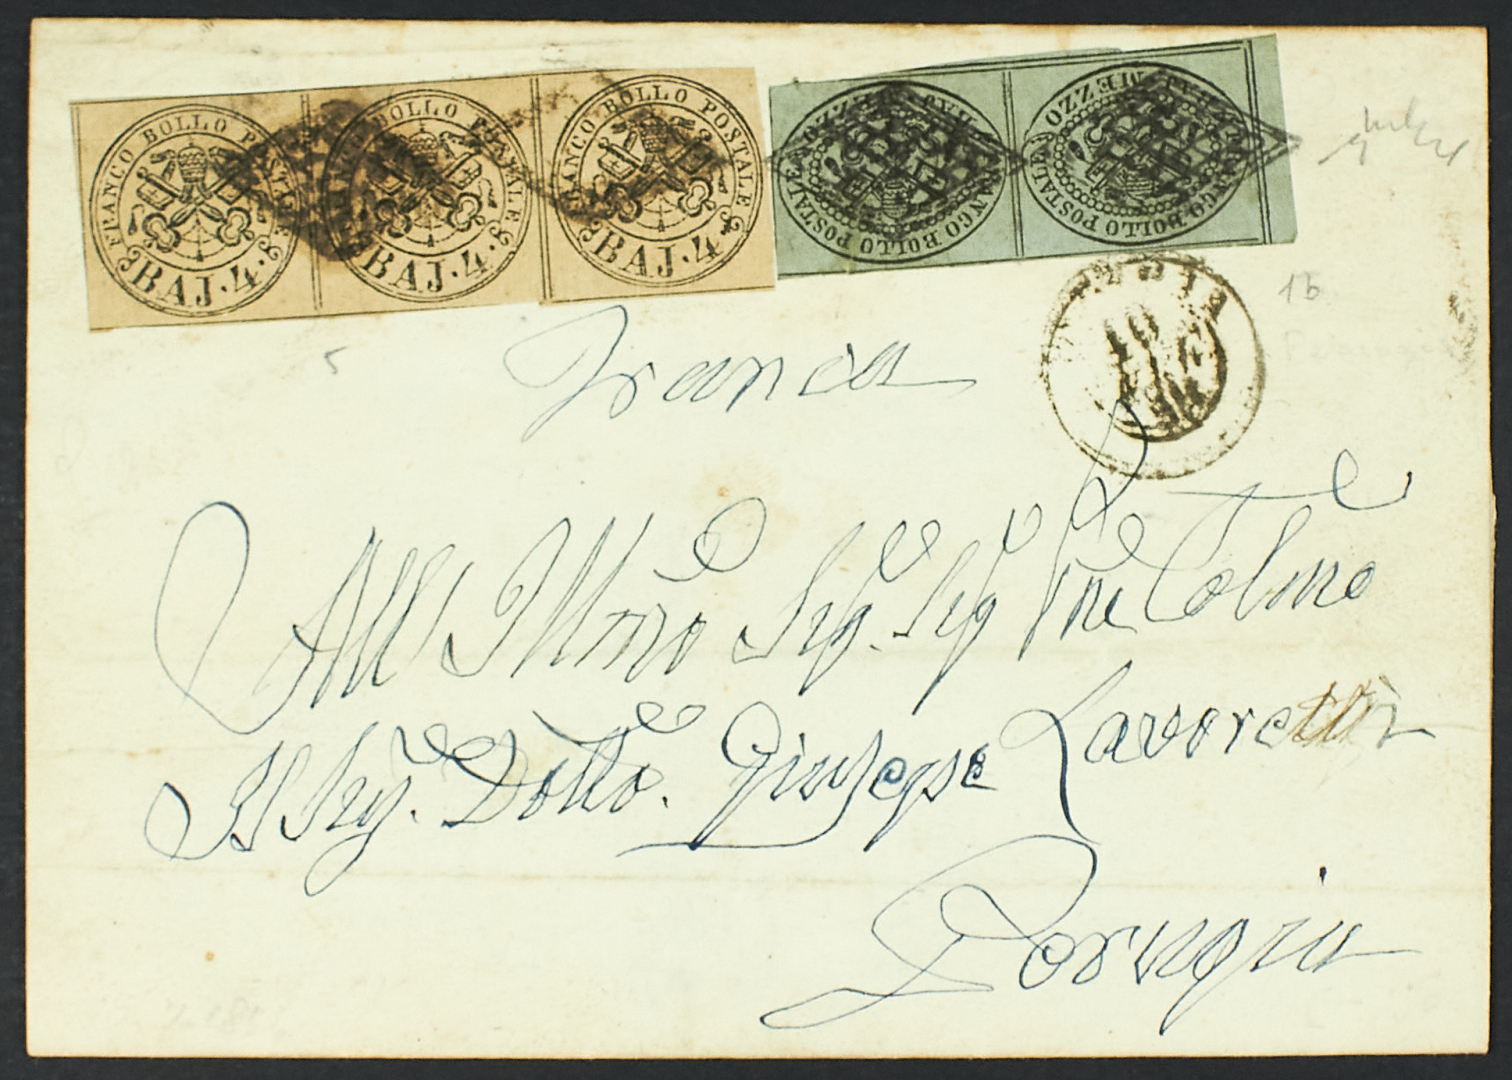 FRANCO BOLLO POSTALE
BAJ. 4.
FRANCO BOLLO POSTALE
BAJ. 4.
FRANCO BOLLO POSTALE
BAJ. 4.
FRANCO BOLLO POSTALE MEZZO BAJ.
FRANCO BOLLO POSTALE MEZZO BAJ.
10
15
5
Franca
All Illmo Sig. Sig. Pne Colmo
Il Sig. Dotto. Giuseppe Lavoretti
Perugia